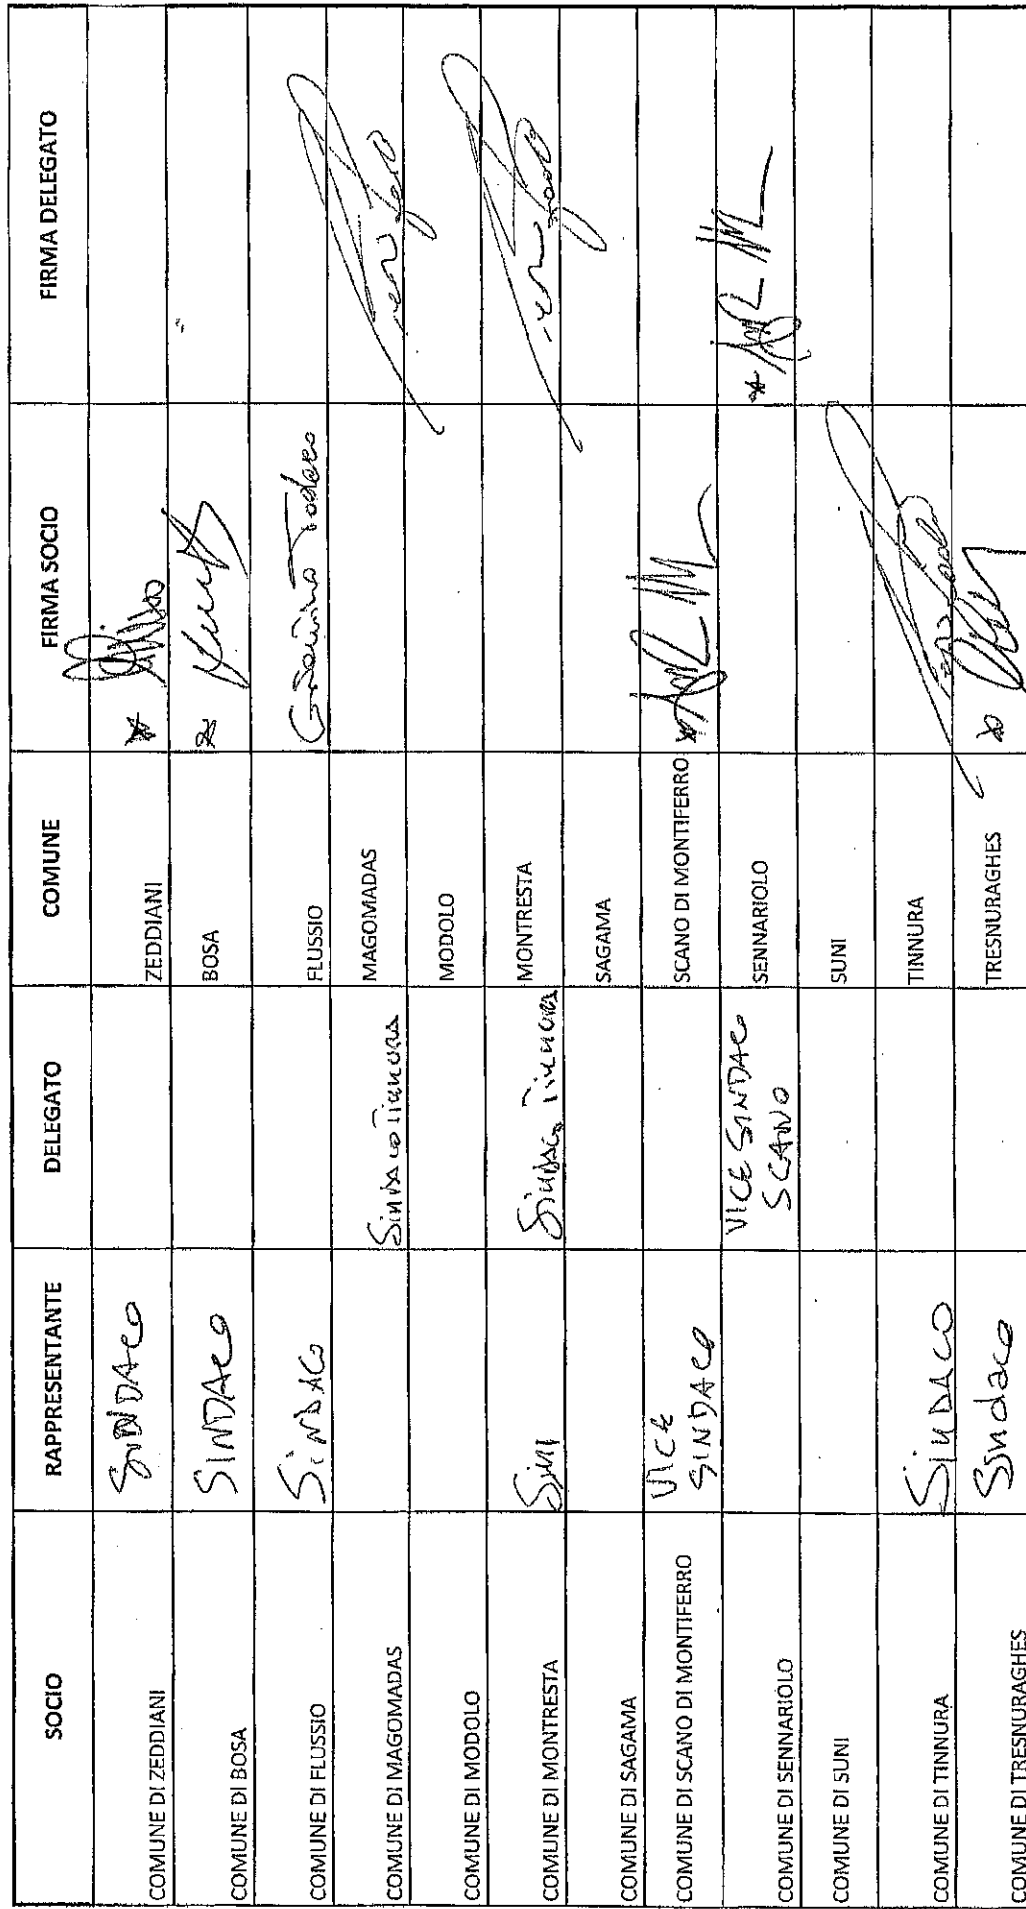 SOCIO RAPPRESENTANTE DELEGATO COMUNE FIRMA SOCIO FIRMA DELEGATO
COMUNE DI ZEDDIANI SINDACO ZEDDIANI *
COMUNE DI BOSA SINDACO BOSA *
COMUNE DI FLUSSIO SINDACO FLUSSIO
COMUNE DI MAGOMADAS SINDACO Tinnura MAGOMADAS
COMUNE DI MODOLO MODOLO
COMUNE DI MONTRESTA SINDACO Tinnura MONTRESTA
COMUNE DI SAGAMA SAGAMA
COMUNE DI SCANO DI MONTIFERRO VICE SINDACO SCANO DI MONTIFERRO *
COMUNE DI SENNARIOLO VICE SINDACO SCANO SENNARIOLO *
COMUNE DI SUNI SUNI
COMUNE DI TINNURA SINDACO TINNURA
COMUNE DI TRESNURAGHES Sindaco TRESNURAGHES *